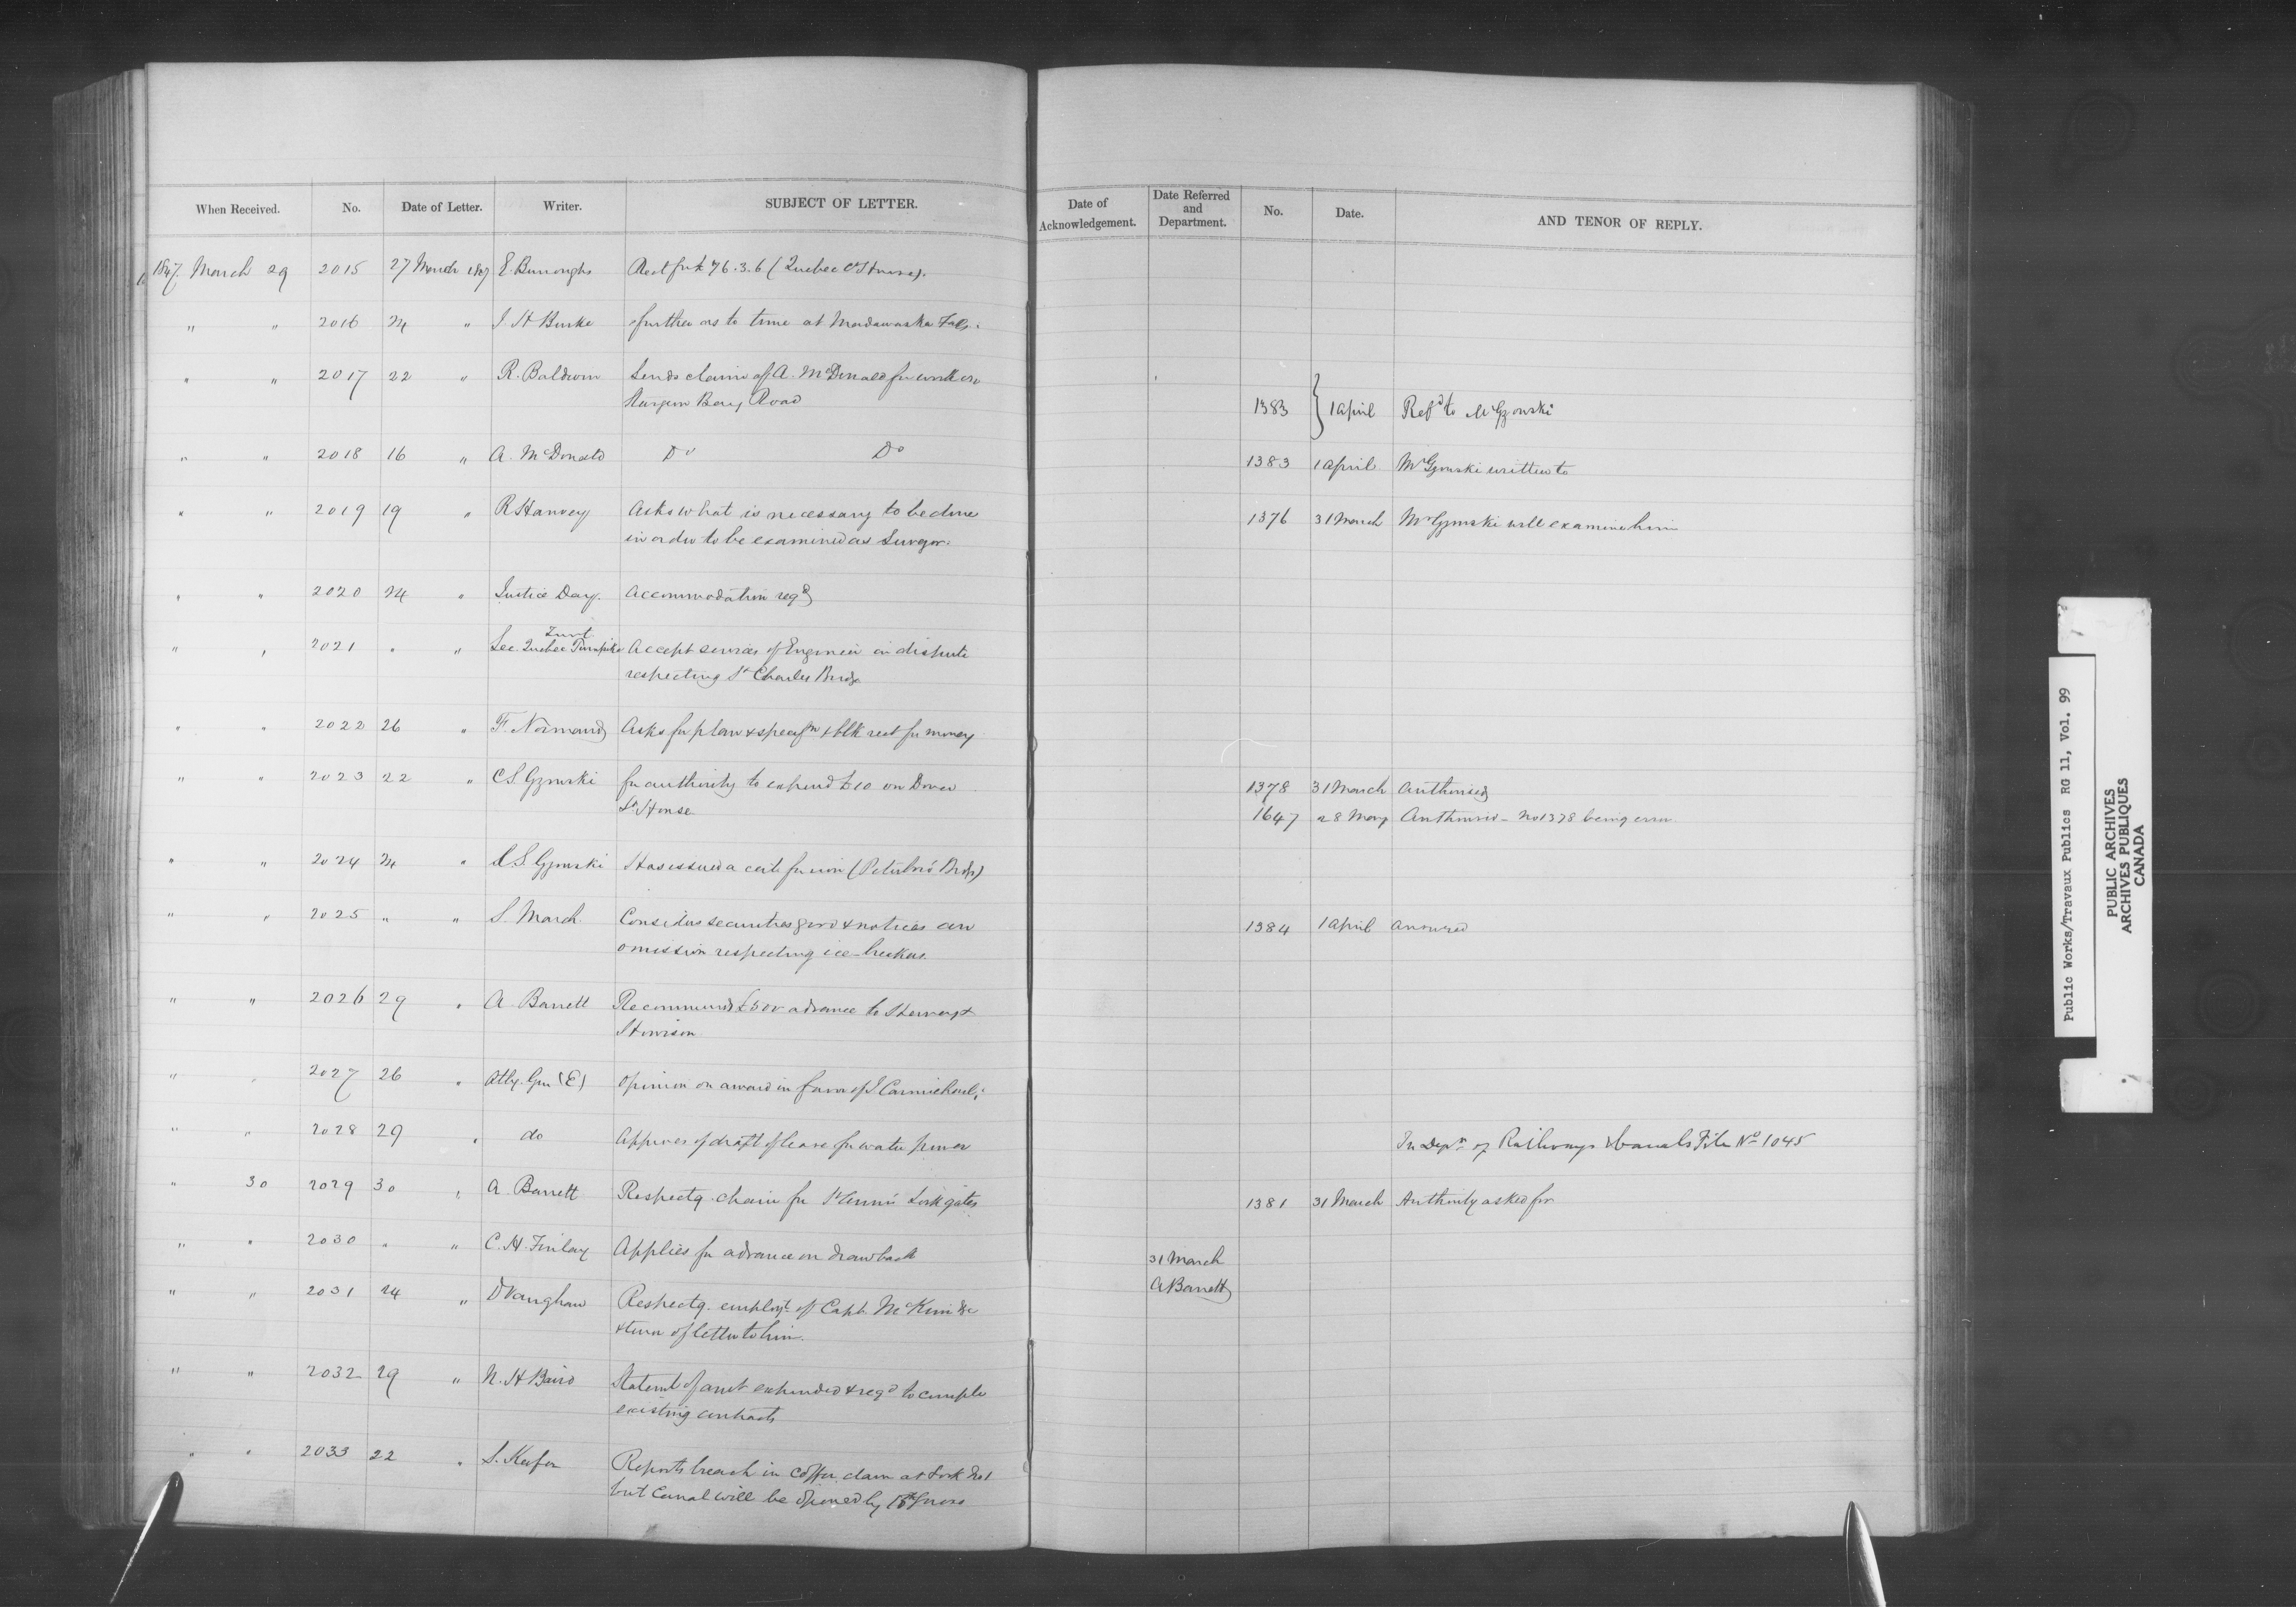 When Received. No. Date of Letter. Writer. SUBJECT OF LETTER. Date of Acknowledgement. Date Referred and Department. No. Date. AND TENOR OF REPLY.
1847 March 29 2015 27 March 1847 E. Burroughs Rect for £76.3.6 (Quebec Ct House).
" " 2016 24 " J. H Burke further as to time at Madawaska
" " 2017 22 " R. Baldwin Sends claim of A. McDonald for work on
Sturgeon Bay Road 1383 } 1 April Refd to Mr Gzowski
" " 2018 16 " A. McDonald Do Do 1383 1 April Mr Gzowski written to
" " 2019 19 " R Harvey Asks what is necessary to be done 1376 31 March Mr Gzowski will examine him
in order to be examined as
" " 2020 24 " Justice Day. Accommodation reqd
" " 2021 " " Sec. Quebec Turnpike Trust Accept services of Engineer in dispute
respecting St Charles Bridge
" " 2022 26 " F. Normand Asks for plan & specifn & blk rect for money
" " 2023 22 " C.S. Gzowski for authority to expend £10 on Dover 1378 31 March Authorised
Lt. House 1647 28 May Authorised - No 1378 being error
" " 2024 24 " C.S. Gzowski Has issued a cert for iron (Peterboro' Bridge)
" " 2025 " " S. March Considers securities good & notices an 1384 1 April answered
omission respecting ice-breakers
" " 2026 29 " A. Barrett Recommends £500 advance to Hervey &
Howison
" " 2027 26 " Atty. Gen (E) Opinion on award in favor of J Carmichael
" " 2028 29 " do Approves of draft of lease for water power In Dept of Railways & Canals File No 1045
" 30 2029 30 " A. Barrett Respectg. chain for St Anne's Lock gates 1381 31 March Authority asked for
" " 2030 " " C. H. Finlay Applies for advance on drawback 31 March
A Barrett
" " 2031 24 " D Vaughan Respectg. employt. of Capt. McKim &c
& tenor of letter to him.
" " 2032 29 " N. H Baird Statemt of amt expended & reqd to complete
existing contracts
" " 2033 22 " S. Keefer Reports breach in coffer dam at Lock No 1
but Canal will be opened by
Public Works/Travaux Publics RG 11, Vol. 99
PUBLIC ARCHIVES
ARCHIVES PUBLIQUES
CANADA